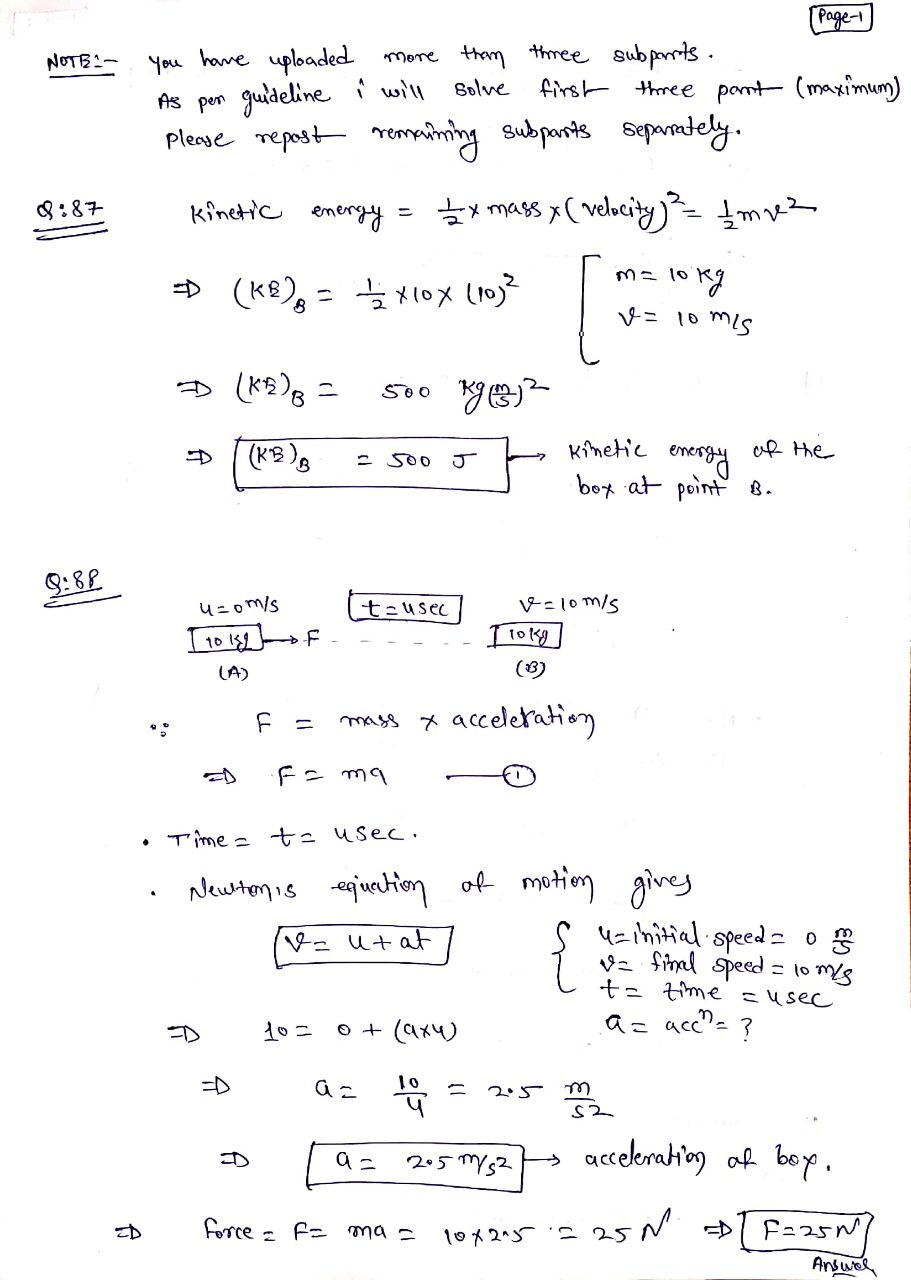 Page-1
NOTE:- you have uploaded more than three subparts.
As per guideline i will solve first three part (maximum)
please repost remaining subparts separately.
Q:87 Kinetic energy = 1/2 × mass × (velocity)² = 1/2 mv²
⇒ (KE)B = 1/2 × 10 × (10)² [ m = 10 kg
v = 10 m/s
⇒ (KE)B = 500 kg(m/s)²
⇒ (KE)B = 500 J → kinetic energy of the
box at point B.
Q:88
u=0 m/s t=4sec v=10 m/s
10 kg → F - - - - - 10 kg
(A) (B)
∵ F = mass × acceleration
⇒ F = ma —— ①
• Time = t = 4sec.
• Newton's equation of motion gives
v = u + at { u = initial speed = 0 m/s
v = final speed = 10 m/s
t = time = 4sec
⇒ 10 = 0 + (a×4) a = accⁿ = ?
⇒ a = 10/4 = 2.5 m/s2
⇒ a = 2.5 m/s2 → acceleration of box.
⇒ force = F = ma = 10×2.5 = 25 N ⇒ F=25N
Answer